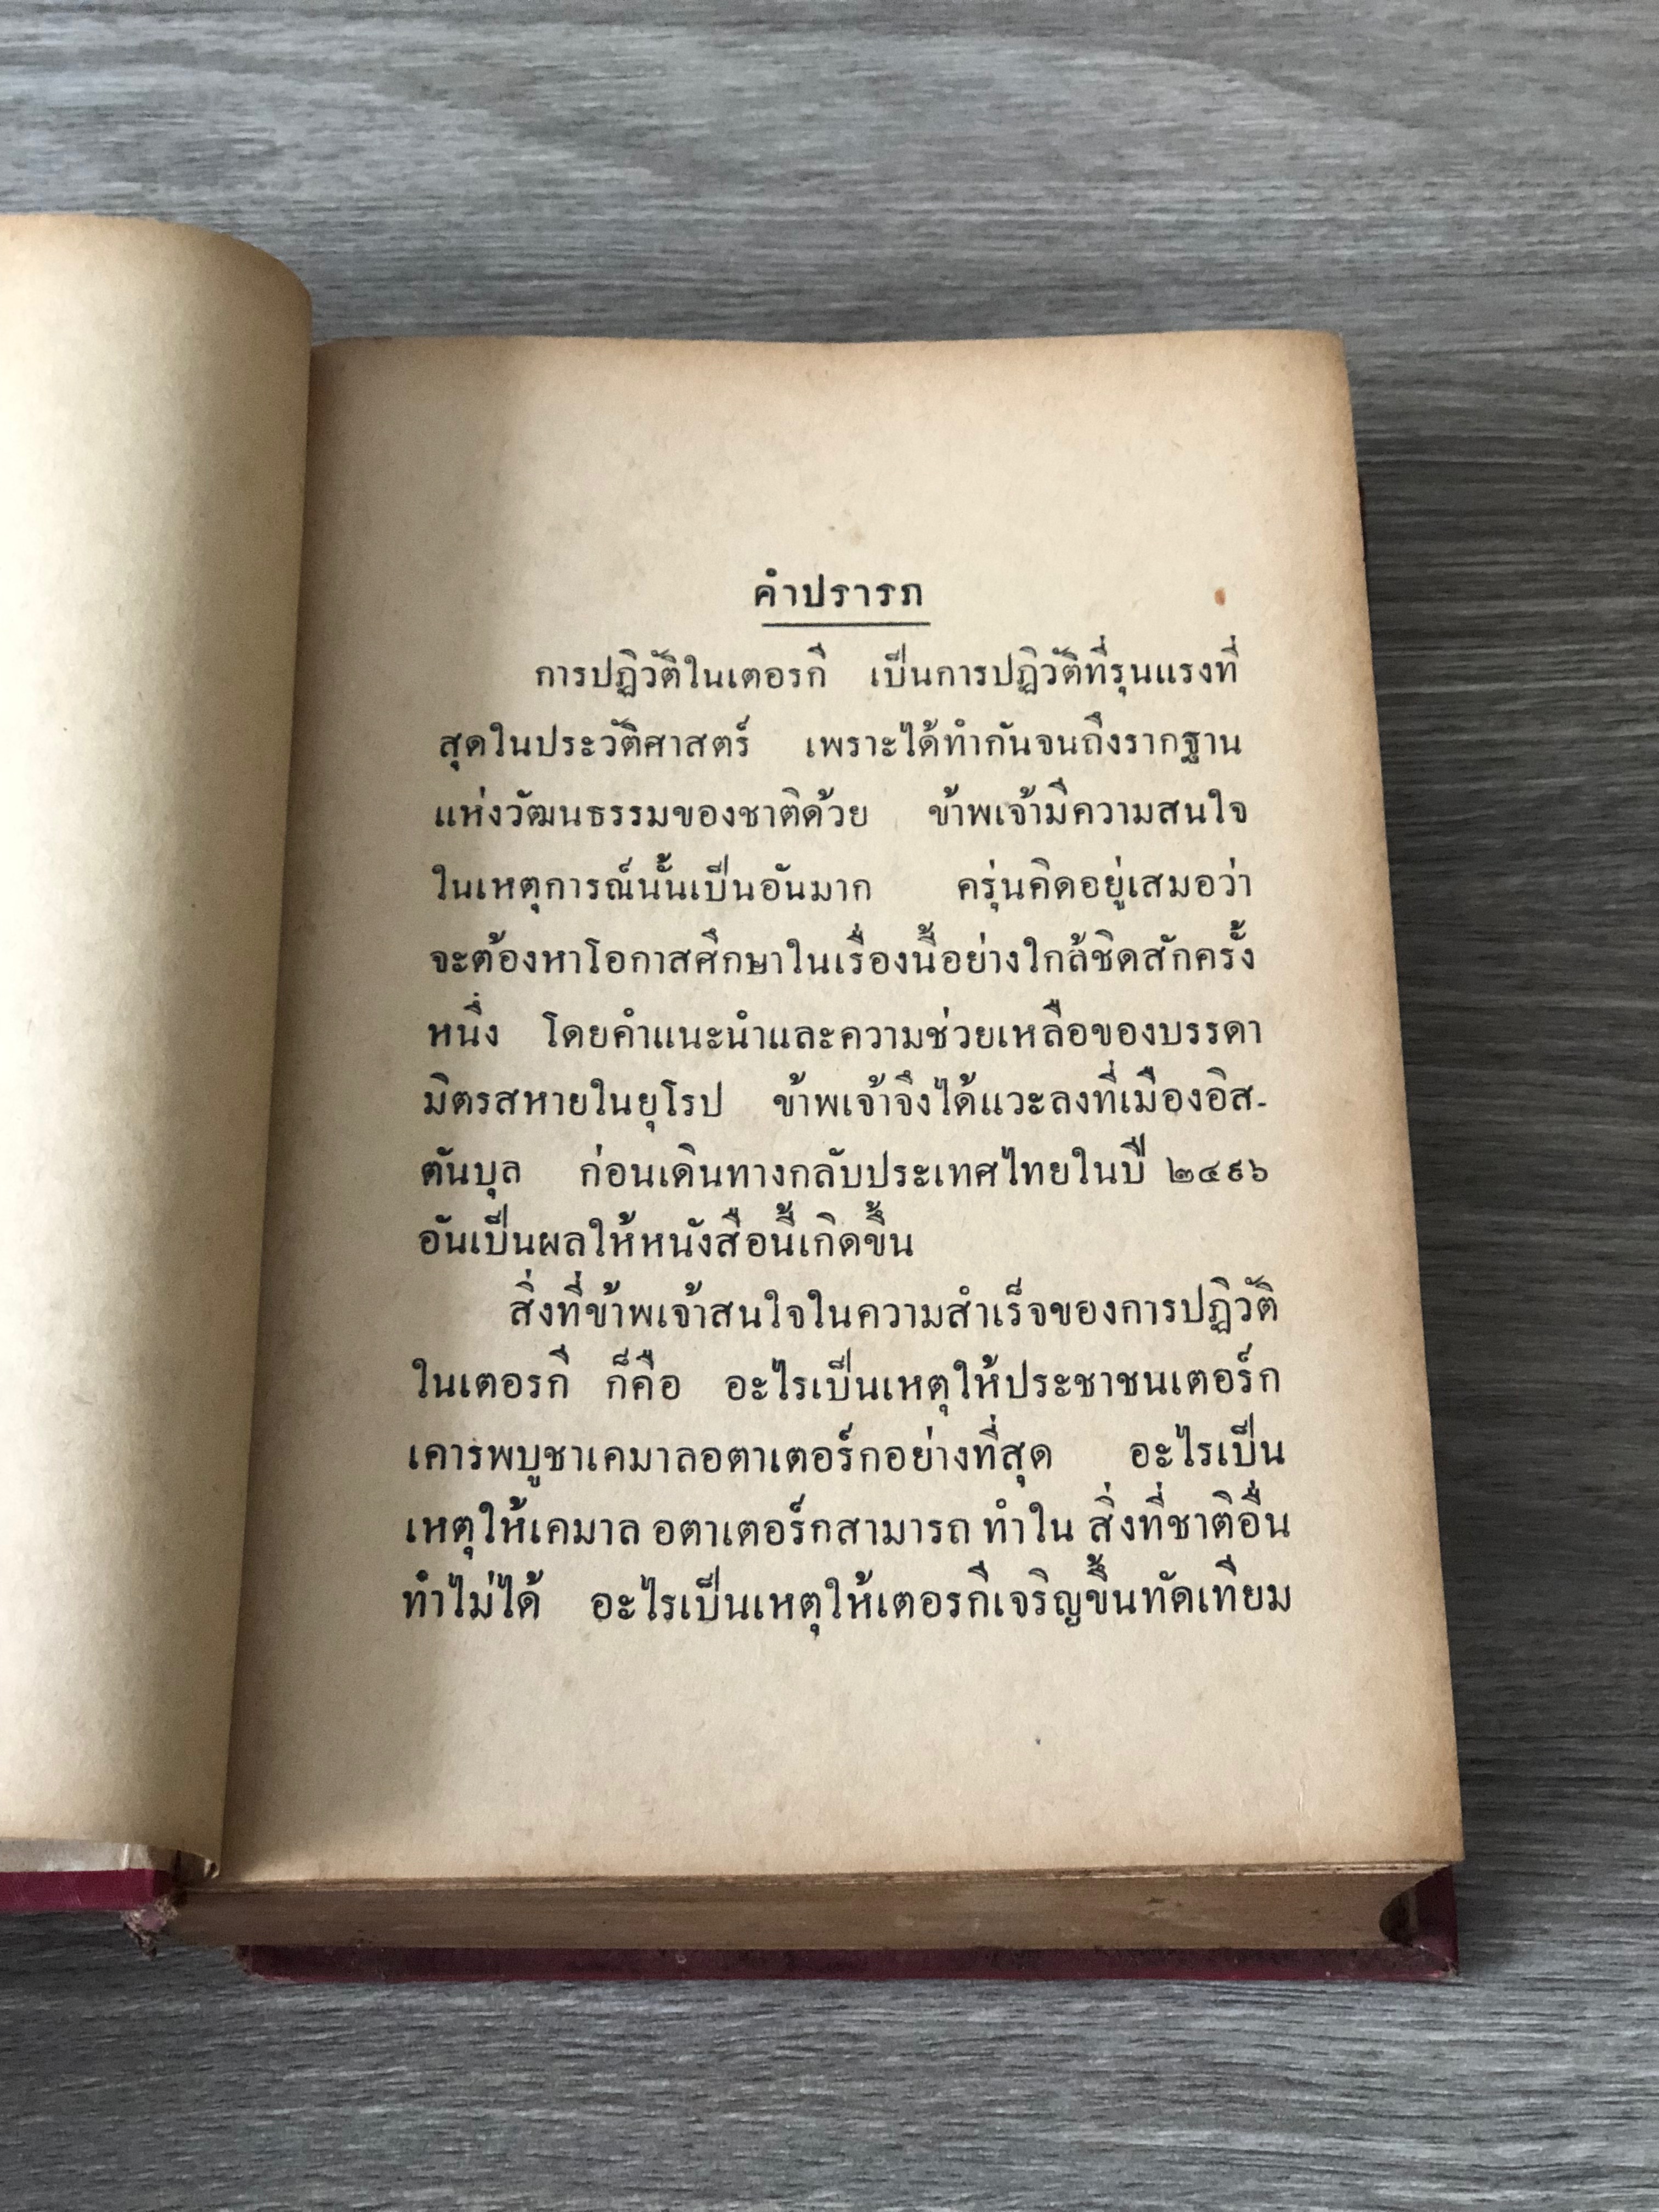 คำปรารภ
การปฏิวัติในเตอรกี เป็นการปฏิวัติที่รุนแรงที่
สุดในประวัติศาสตร์ เพราะได้ทำกันจนถึงรากฐาน
แห่งวัฒนธรรมของชาติด้วย ข้าพเจ้ามีความสนใจ
ในเหตุการณ์นั้นเป็นอันมาก ครุ่นคิดอยู่เสมอว่า
จะต้องหาโอกาสศึกษาในเรื่องนี้อย่างใกล้ชิดสักครั้ง
หนึ่ง โดยคำแนะนำและความช่วยเหลือของบรรดา
มิตรสหายในยุโรป ข้าพเจ้าจึงได้แวะลงที่เมืองอิส-
ตันบุล ก่อนเดินทางกลับประเทศไทยในปี ๒๔๙๖
อันเป็นผลให้หนังสือนี้เกิดขึ้น
สิ่งที่ข้าพเจ้าสนใจในความสำเร็จของการปฏิวัติ
ในเตอรกี ก็คือ อะไรเป็นเหตุให้ประชาชนเตอร์ก
เคารพบูชาเคมาลอตาเตอร์กอย่างที่สุด อะไรเป็น
เหตุให้เคมาล อตาเตอร์กสามารถ ทำใน สิ่งที่ชาติอื่น
ทำไม่ได้ อะไรเป็นเหตุให้เตอรกีเจริญขึ้นทัดเทียม